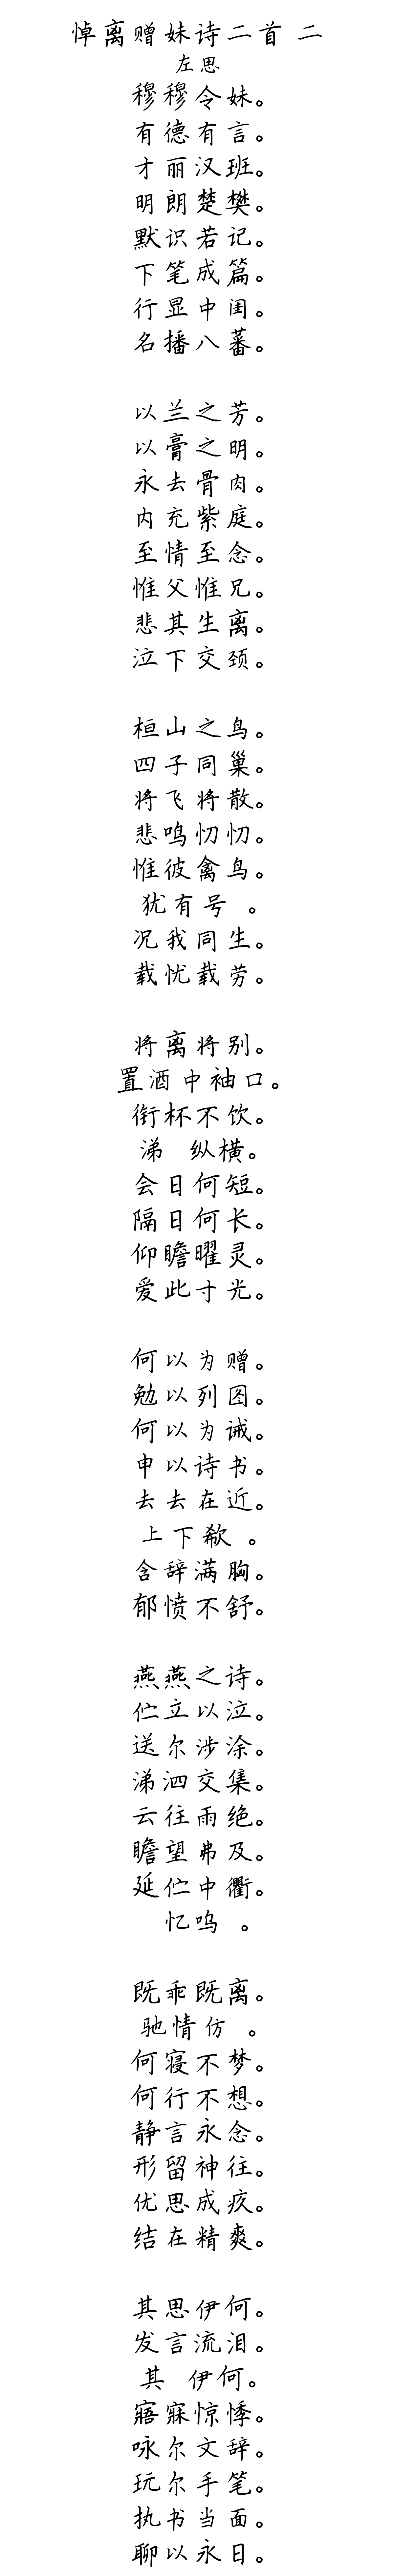 悼离赠妹诗二首 二
左思
穆穆令妹。
有德有言。
才丽汉班。
明朗楚樊。
默识若记。
下笔成篇。
行显中闺。
名播八蕃。
以兰之芳。
以膏之明。
永去骨肉。
内充紫庭。
至情至念。
惟父惟兄。
悲其生离。
泣下交颈。
桓山之鸟。
四子同巢。
将飞将散。
悲鸣忉忉。
惟彼禽鸟。
犹有号 。
况我同生。
载忧载劳。
将离将别。
置酒中袖口。
衔杯不饮。
涕 纵横。
会日何短。
隔日何长。
仰瞻曜灵。
爱此寸光。
何以为赠。
勉以列图。
何以为诫。
申以诗书。
去去在近。
上下欷 。
含辞满胸。
郁愤不舒。
燕燕之诗。
伫立以泣。
送尔涉涂。
涕泗交集。
云往雨绝。
瞻望弗及。
延伫中衢。
忆呜 。
既乖既离。
驰情仿 。
何寝不梦。
何行不想。
静言永念。
形留神往。
优思成疚。
结在精爽。
其思伊何。
发言流泪。
其 伊何。
寤寐惊悸。
咏尔文辞。
玩尔手笔。
执书当面。
聊以永日。